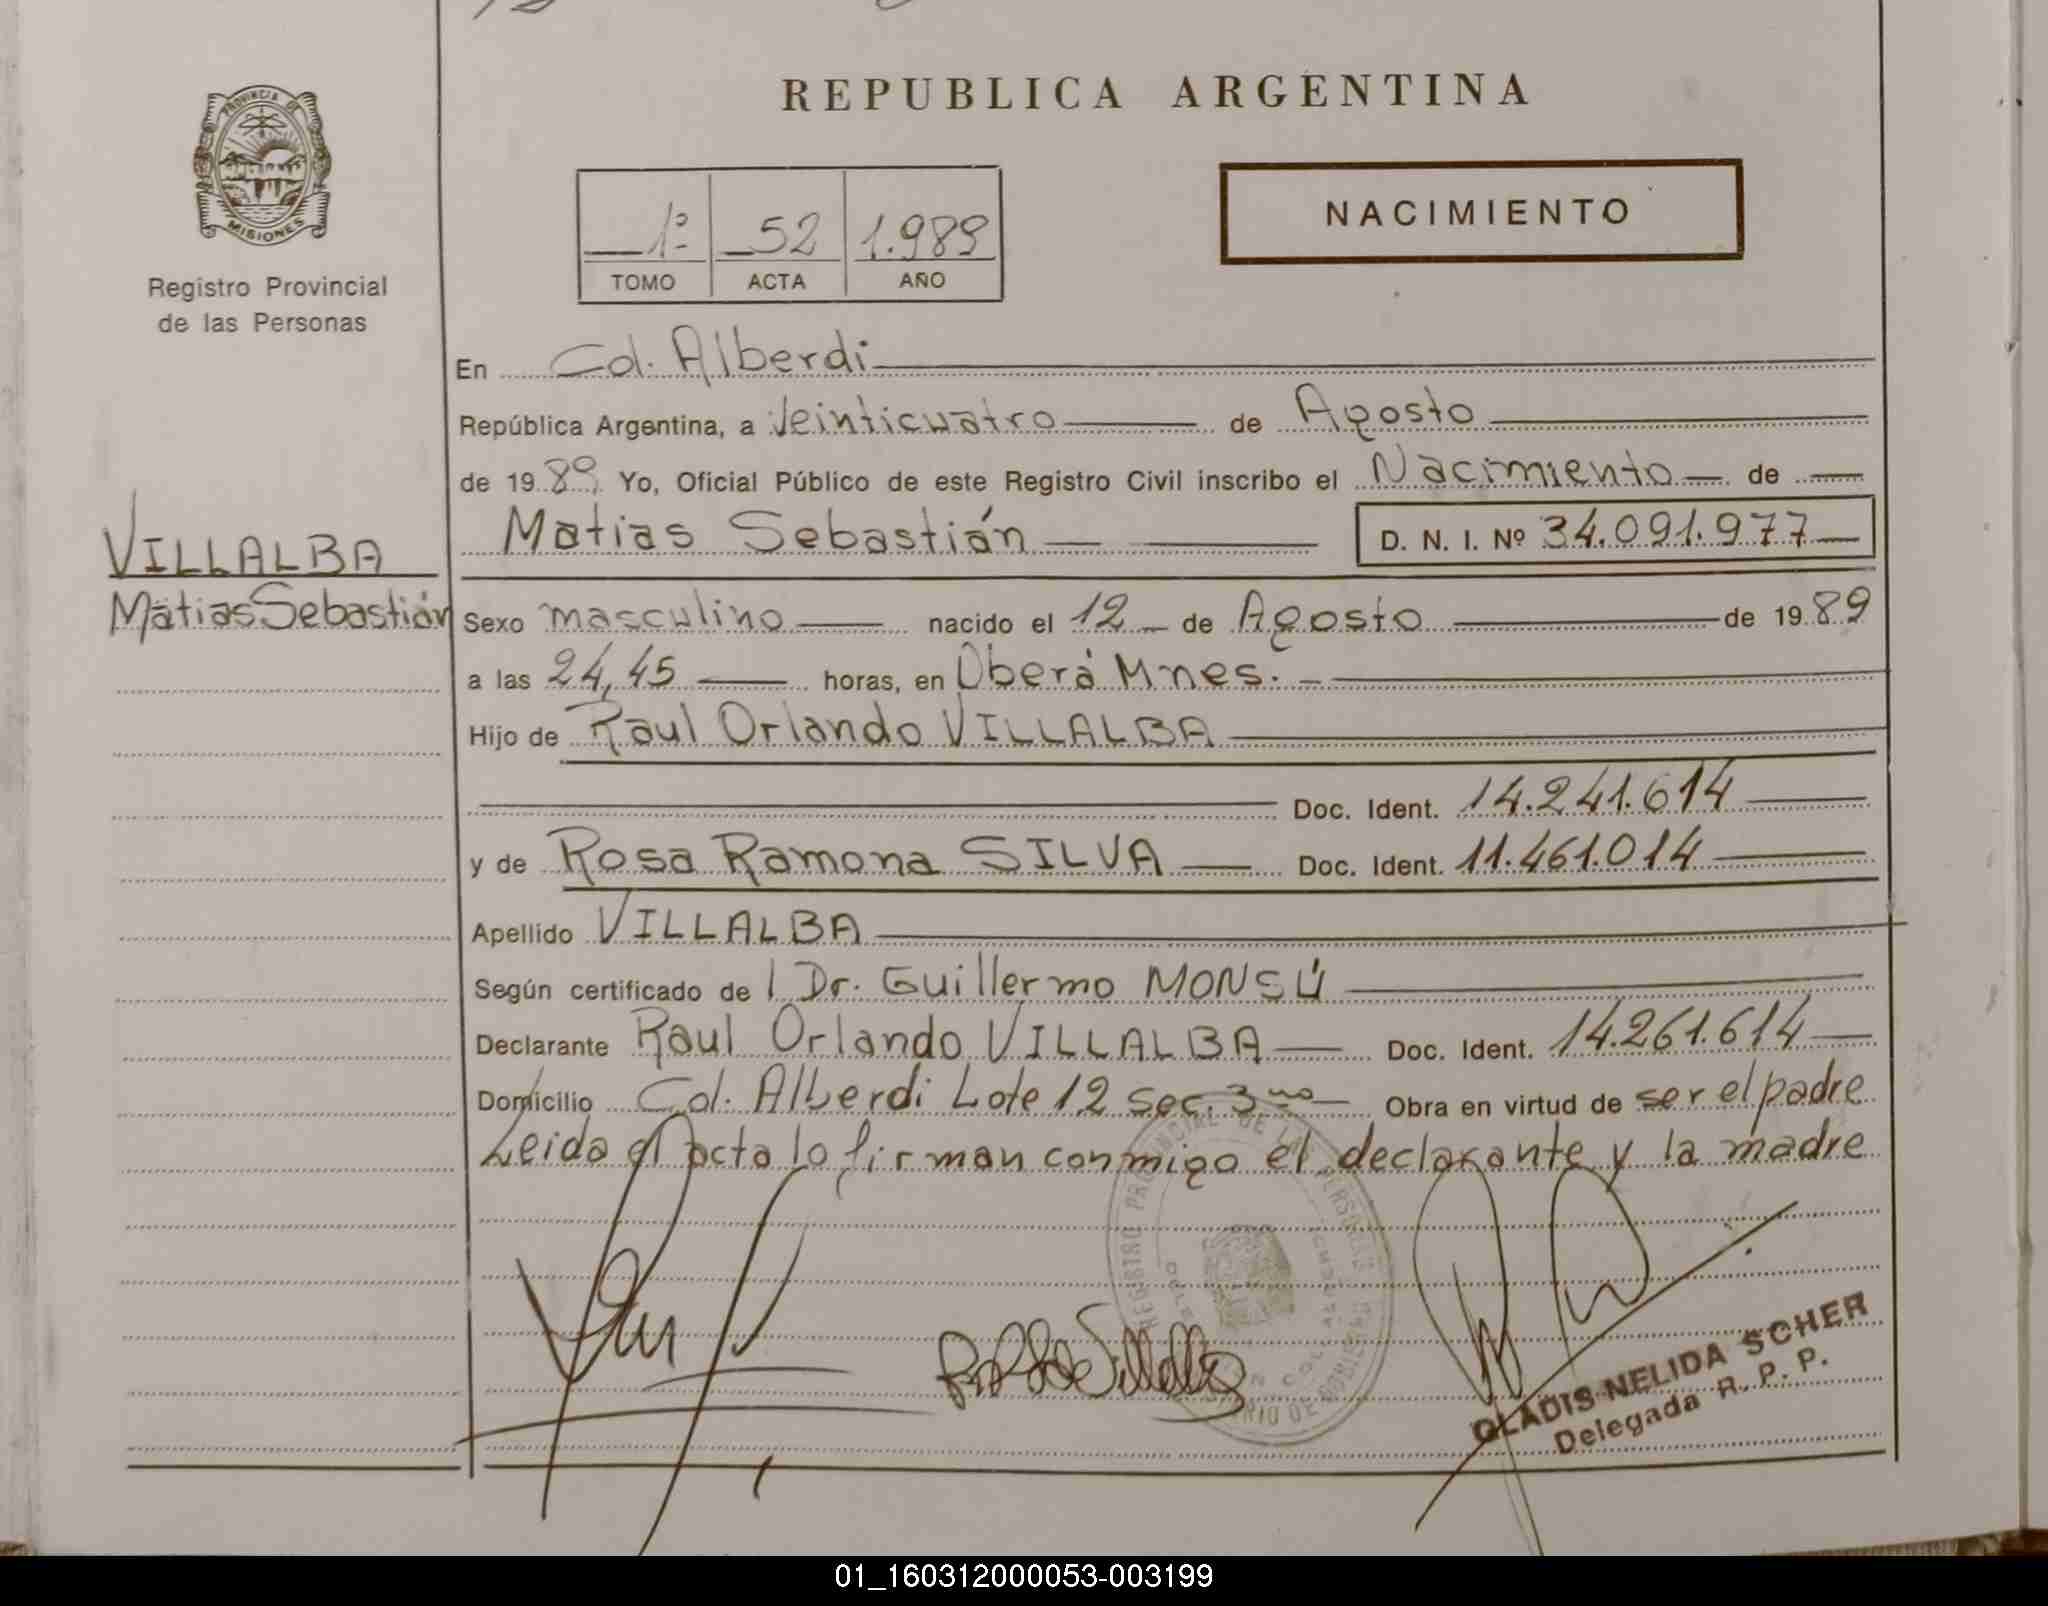 REPUBLICA ARGENTINA
PROVINCIA DE
MISIONES
Registro Provincial
de las Personas
1º 52 1.989
TOMO ACTA AÑO
NACIMIENTO
En Col. Alberdi
República Argentina, a Veinticuatro de Agosto
de 1989 Yo, Oficial Público de este Registro Civil inscribo el Nacimiento de
Matias Sebastián D. N. I. Nº 34.091.977
VILLALBA
Matias Sebastián
Sexo masculino nacido el 12 de Agosto de 1989
a las 24,45 horas, en Oberá Mnes.
Hijo de Raul Orlando VILLALBA
Doc. Ident. 14.241.614
y de Rosa Ramona SILVA Doc. Ident. 11.461.014
Apellido VILLALBA
Según certificado de l Dr. Guillermo MONSÚ
Declarante Raul Orlando VILLALBA Doc. Ident. 14.261.614
Domicilio Col. Alberdi Lote 12 sec. 3 Obra en virtud de ser el padre
Leida el acta lo firman conmigo el declarante y la madre
REGISTRO PROVINCIAL DE LAS PERSONAS
GLADIS NELIDA SCHER
Delegada R. P. P.
01_160312000053-003199